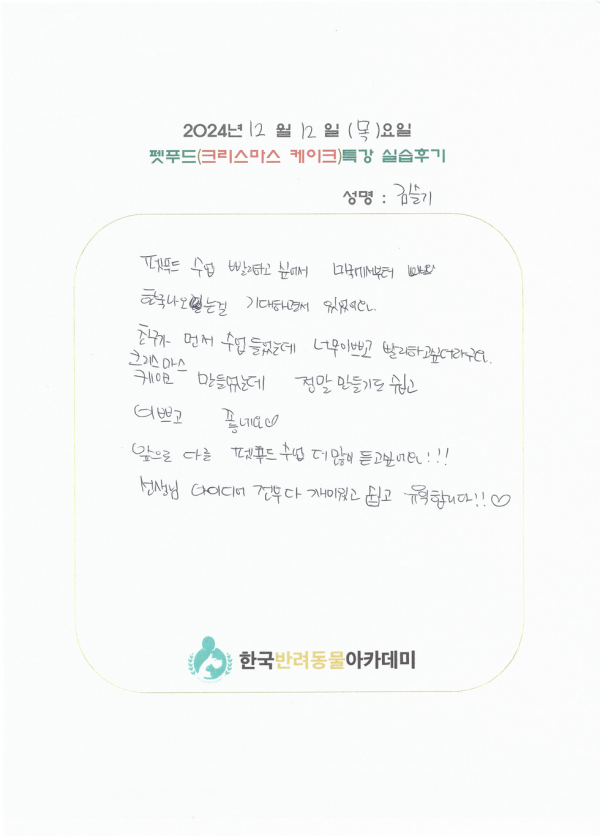 2024년 12 월 12 일 (목)요일
펫푸드(크리스마스 케이크)특강 실습후기
성명 : 김슬기
펫푸드 수업 빨리하고 싶어서 미국에서부터
한국나오는걸 기대하면서 있었어요.
친구가 먼저 수업들었는데 너무이쁘고 빨리하고싶더라구요.
크리스마스
케이크 만들었는데 정말 만들기도 쉽고
이쁘고 좋네요♡
앞으로 다른 펫푸드 수업 더 많이 듣고싶어요!!!
선생님 아이디어 전부다 재미있고 쉽고 유익합니다!!♡
한국반려동물아카데미